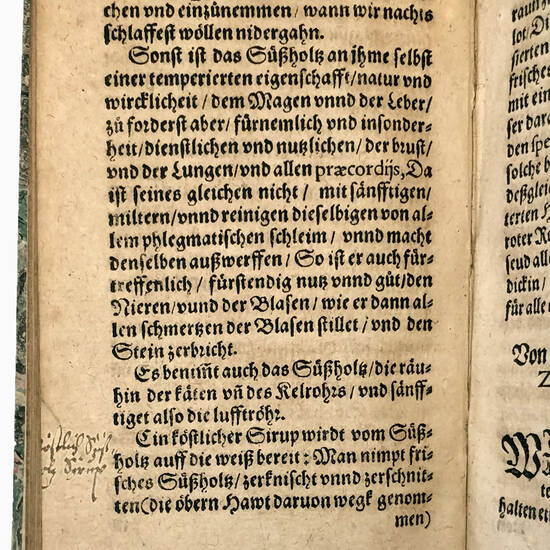 chen vnd einzünemmen / wann wir nachts
schlaffest wöllen nidergahn.
Sonst ist das Süßholtz an jhme selbst
einer temperierten eigenschafft/natur vnd
wircklicheit / dem Magen vnnd der Leber/
zů forderst aber/ fürnemlich vnd insonder⸗
heit/dienstlichen vnd nutzlichen/ der brust/
vnd der Lungen/vnd allen præcordijs, Da
ist seines gleichen nicht / mit sänfftigen/
miltern/vnnd reinigen dieselbigen von al⸗
lem phlegmatischen schleim / vnnd macht
denselben außwerffen / So ist er auch für⸗
treffenlich / fürstendig nutz vnnd gůt/den
Nieren/vnnd der Blasen / wie er dann al⸗
len schmertzen der Blasen stillet / vnd den
Stein zerbricht.
Es benim̃t auch das Süßholtz/die räu⸗
hin der käten vñ des Kelrohrs / vnd sänff⸗
tiget also die lufftröhr.
Ein köstlicher Sirup wirdt vom Süß⸗
holtz auff die weiß bereit : Man nimpt fri⸗
sches Süßholtz/zerknischt vnnd zerschnit⸗
ten(die öbern Hawt daruon wegk genom⸗
men)
lot/
sierten
frisches
mit ein
ser dar
den spe
solche b
deßglei
terten
roter R
seud all
dickin /
für alle
Von
Z
W
te
halten et